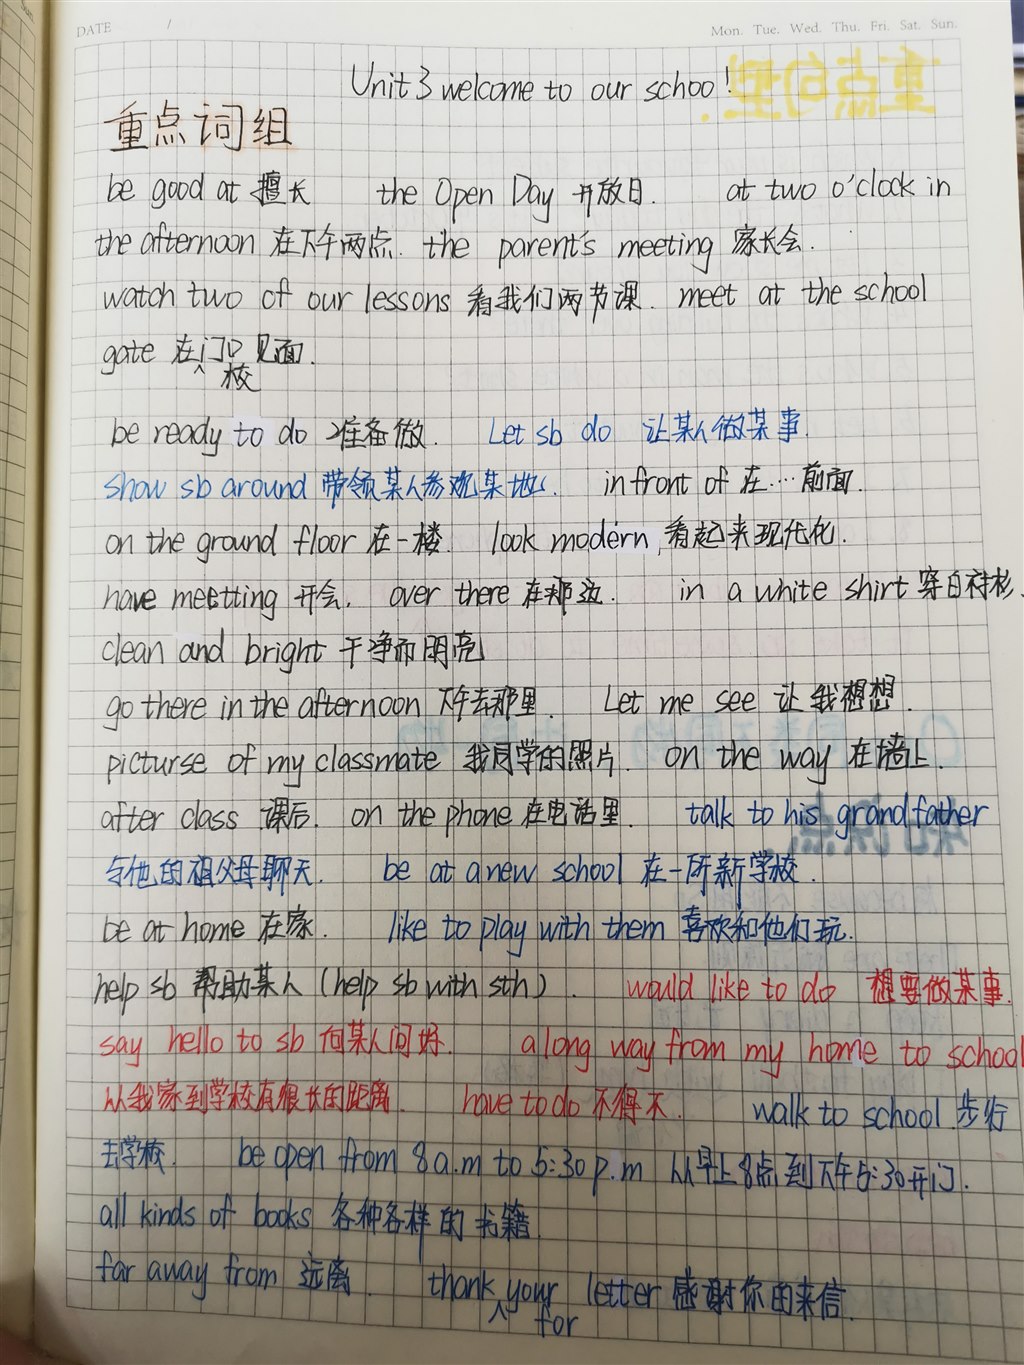 DATE /
Mon. Tue. Wed. Thu. Fri. Sat. Sun.
Unit 3 welcome to our school!
重点词组
be good at 擅长 the Open Day 开放日. at two o'clock in
the afternoon 在下午两点. the parent's meeting 家长会.
watch two of our lessons 看我们两节课. meet at the school
gate 在校门口见面.
be ready to do 准备做. Let sb do 让某人做某事.
show sb around 带领某人参观某地. in front of 在····前面.
on the ground floor 在一楼. look modern 看起来现代化.
have meetting 开会. over there 在那边. in a white shirt 穿白衬衫.
clean and bright 干净而明亮
go there in the afternoon 下午去那里. Let me see 让我想想.
picturse of my classmate 我同学的照片. on the way 在墙上.
after class 课后. on the phone 在电话里. talk to his grandfather
令他的祖父母聊天. be at a new school 在一所新学校.
be at home 在家. like to play with them 喜欢和他们玩.
help sb 帮助某人 (help sb with sth). would like to do 想要做某事.
say hello to sb 向某人问好. a long way from my home to school
从我家到学校有很长的距离. have to do 不得不. walk to school 步行
去学校. be open from 8 a.m to 5:30 p.m 从早上8点到下午5:30开门.
all kinds of books 各种各样的书籍.
far away from 远离. thank for your letter 感谢你的来信.